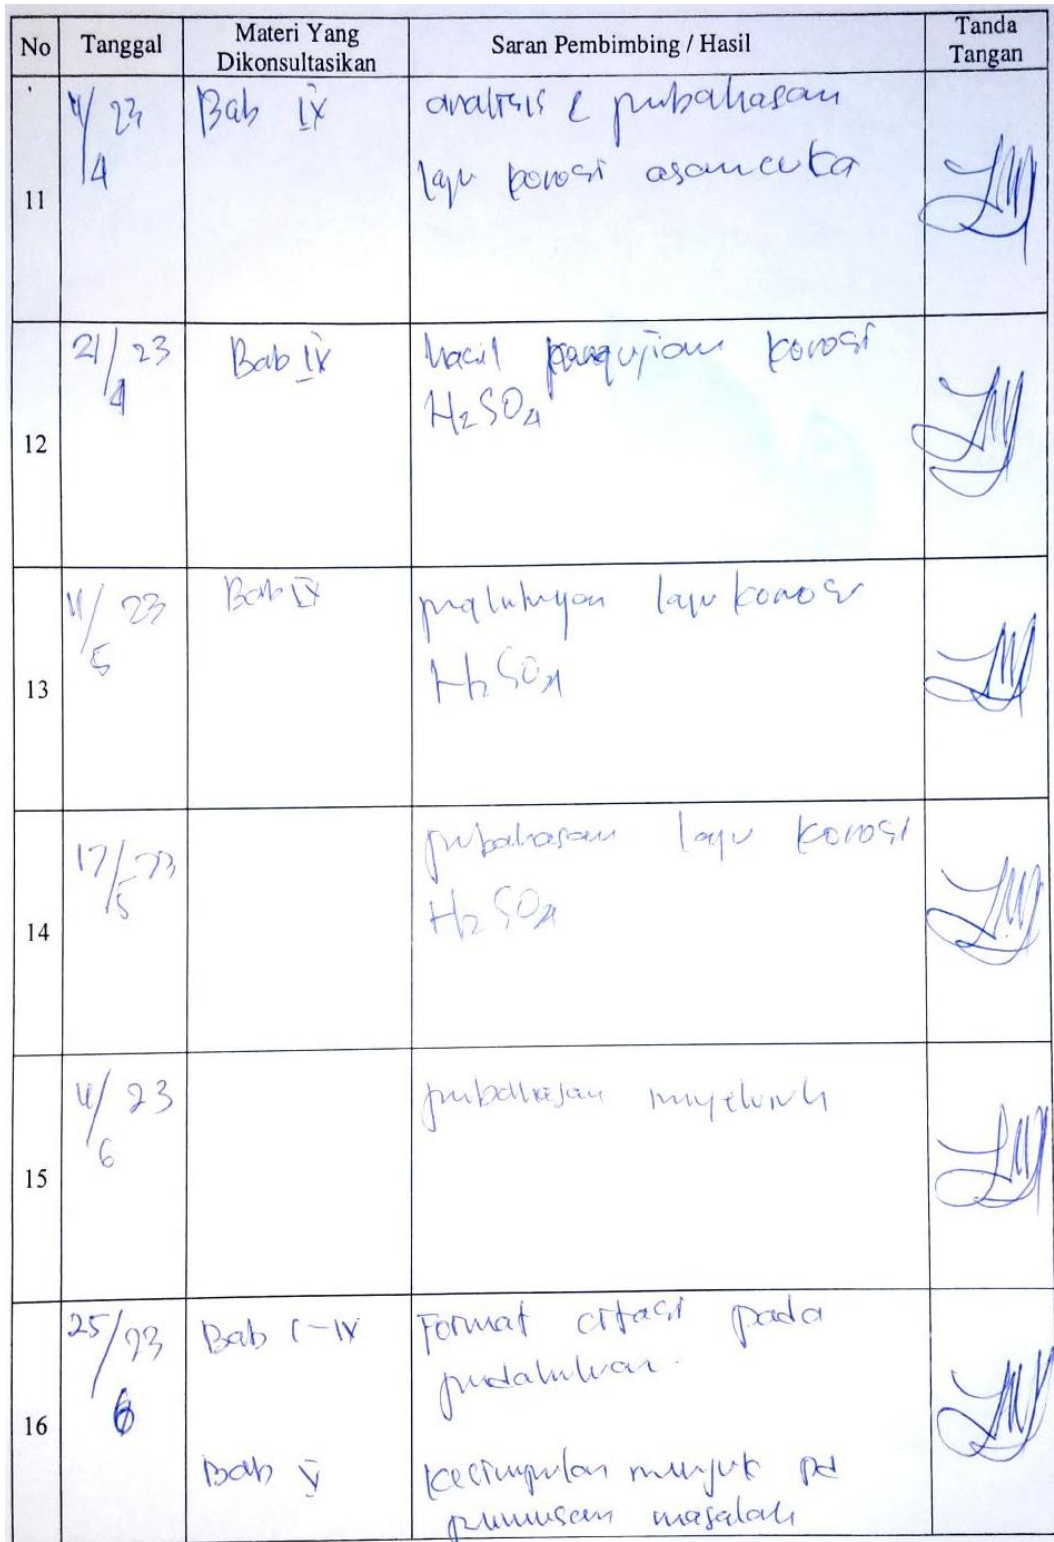 No Tanggal Materi Yang Dikonsultasikan Saran Pembimbing / Hasil Tanda Tangan
11 4/4 23 Bab IV analisis & pmbahasan
laju korosi asam cuka
12 21/4 23 Bab IV hasil pengujian korosi
H2SO4
13 4/5 23 Bab IV laju korosi
H2SO4
14 17/5 23 pmbahasan laju korosi
H2SO4
15 4/6 23 pmbahasan
16 25/6 23 Bab I-IV Format citasi pada
pndahuluan.
Bab V Kesimpulan pd
masalah